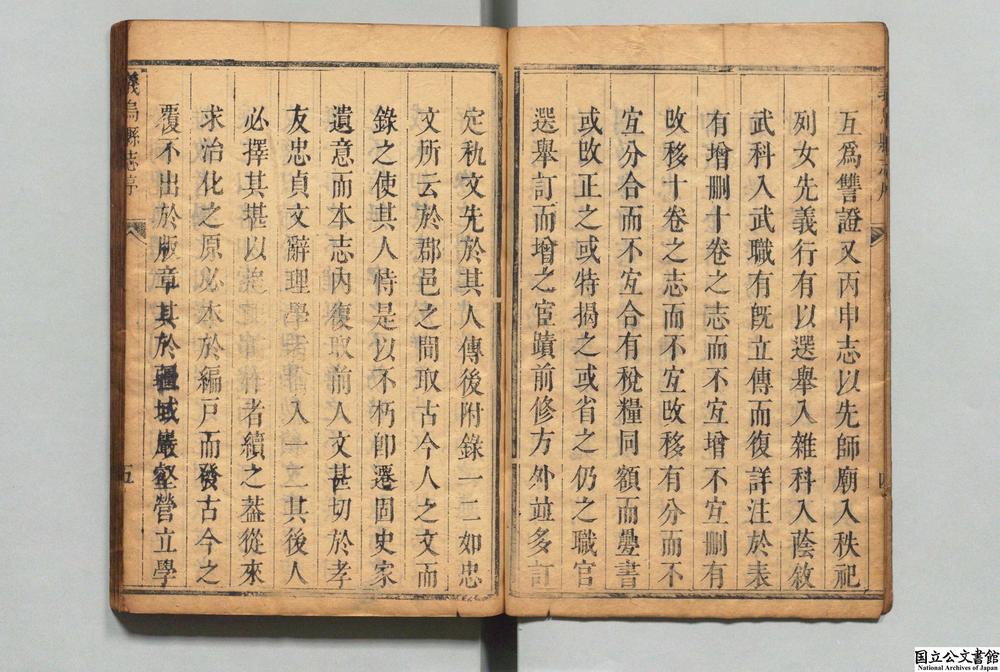 互爲讐證又丙申志以先師廟入秩祀
列女先義行有以選舉入雜科入蔭敘
武科入武職有旣立傳而復詳注於表
有增刪十卷之志而不宐增不宐刪有
攺移十卷之志而不宐攺移有分而不
宐分合而不宐合有稅糧同額而疊書
或攺正之或特揭之或省之仍之職官
選舉訂而增之宦蹟前修方外竝多訂
定秇文先於其人傳後附錄一二如忠
文所云於郡邑之間取古今人之文而
錄之使其人恃是以不朽卽遷固史家
遺意而本志內復取前人文甚切於孝
友忠貞文辭理學者入一二其後人
必擇其堪以者續之葢從來
求治化之原必本於編戸而發古今之
覆不出於版章其於疆域巖壑營立學
義烏縣志序
五
国立公文書館
National Archives of Japan